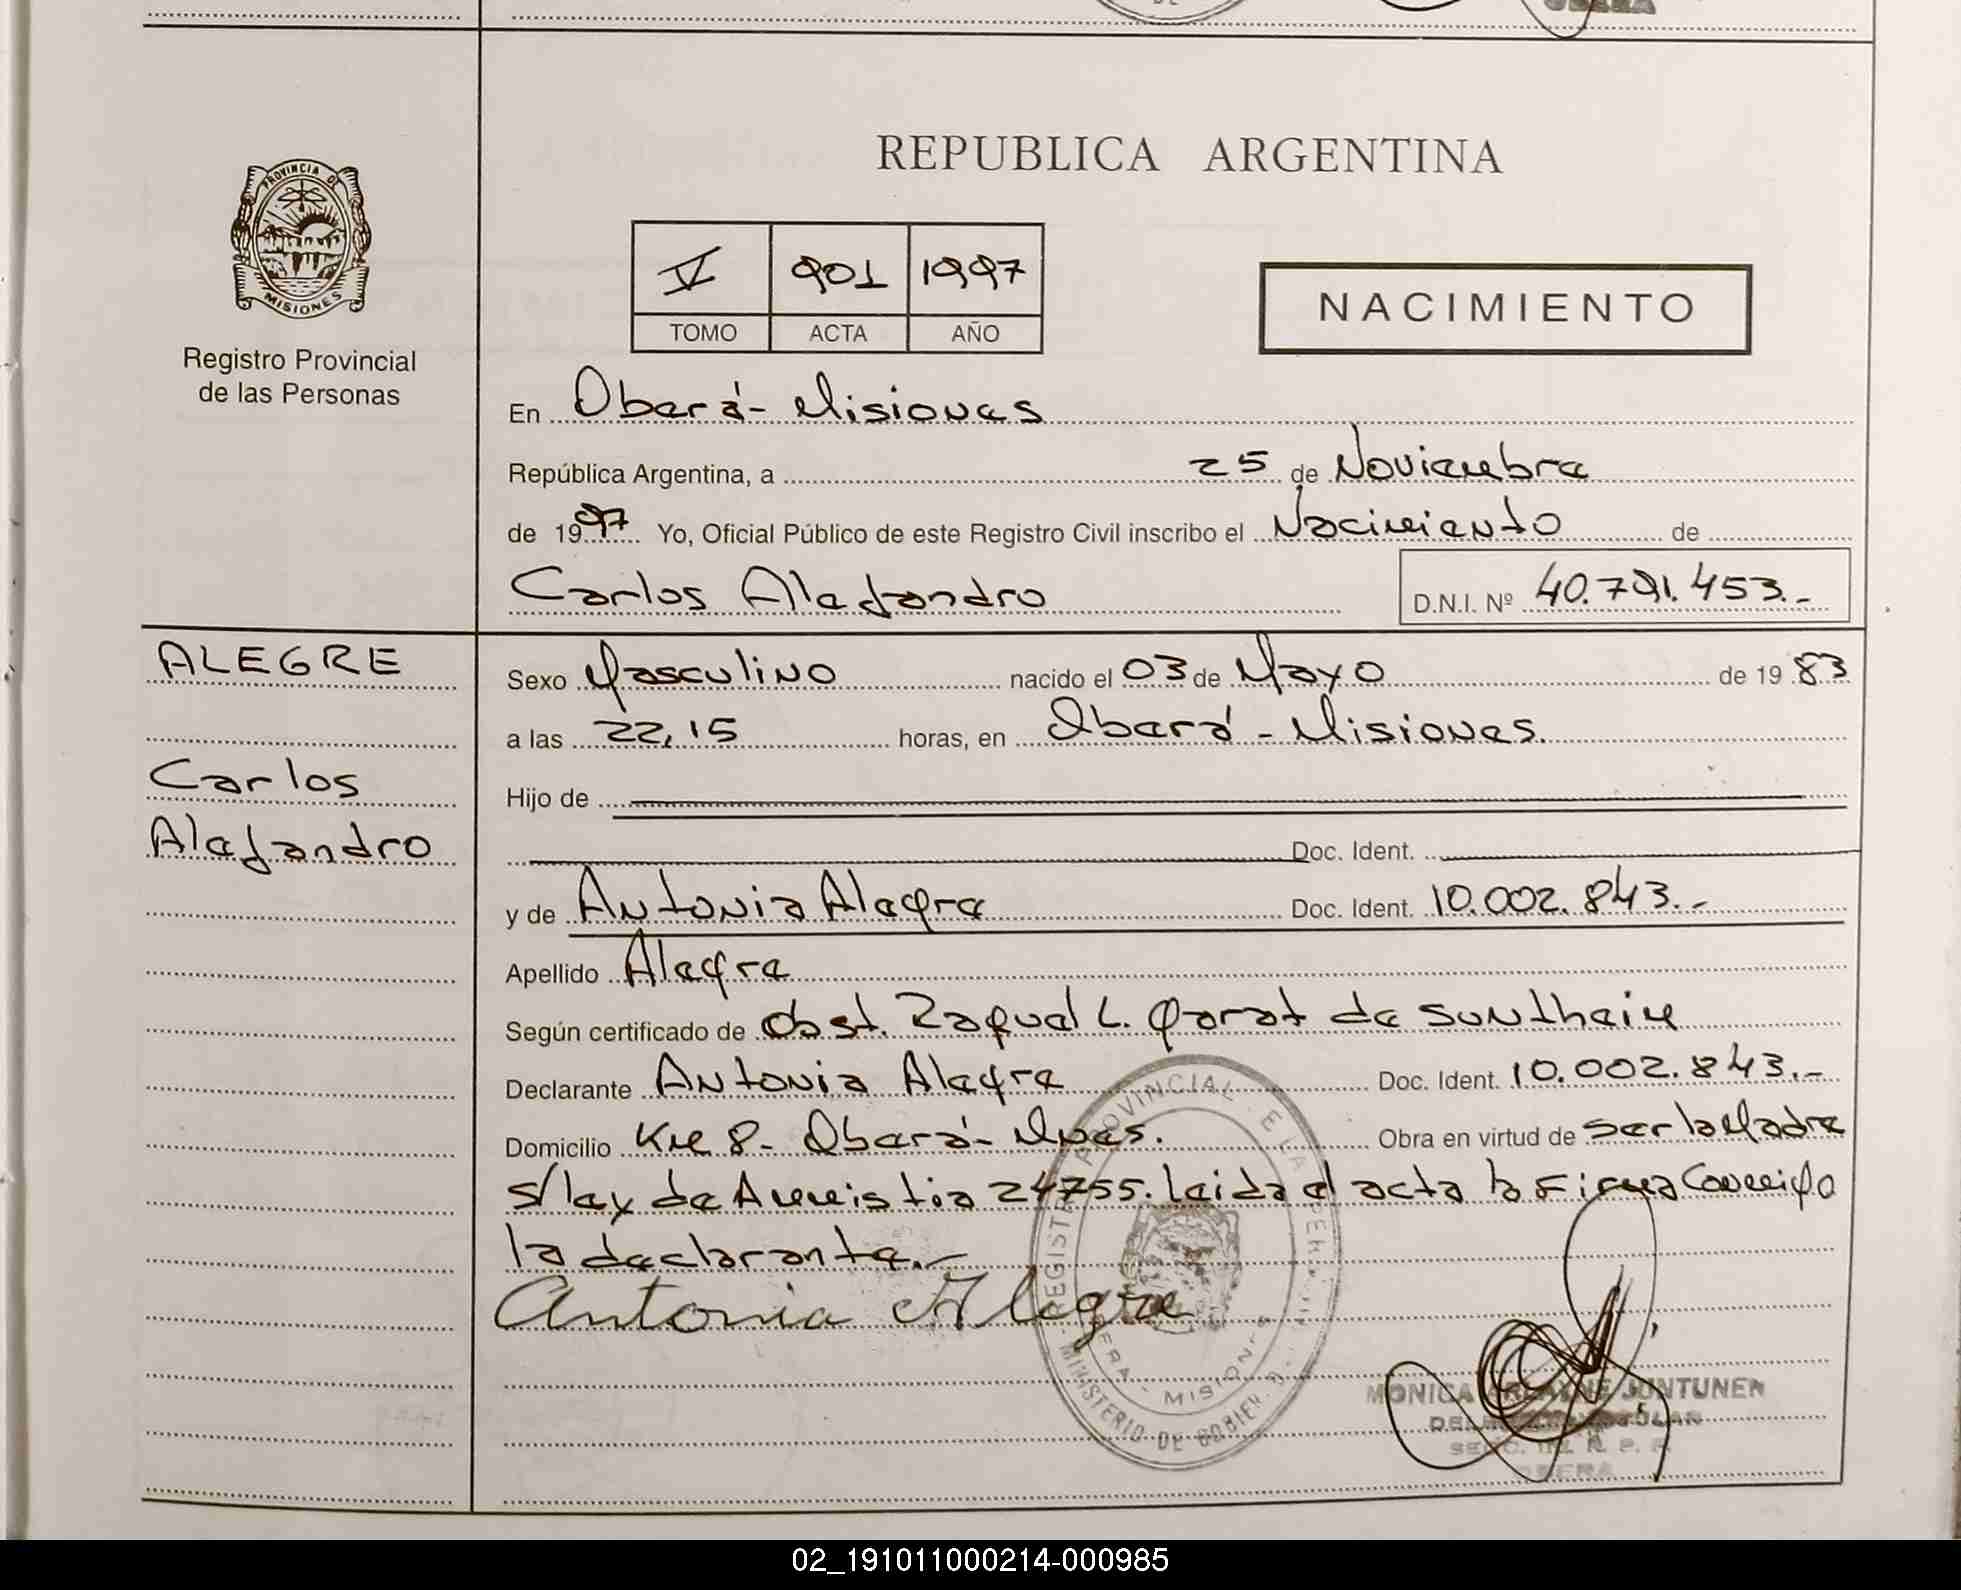 REPUBLICA ARGENTINA
PROVINCIA DE
MISIONES
Registro Provincial
de las Personas
V 901 1997
TOMO ACTA AÑO
NACIMIENTO
En Oberá - Misiones
República Argentina, a 25 de Noviembre
de 1997 Yo, Oficial Público de este Registro Civil inscribo el Nacimiento de
Carlos Alejandro D.N.I. Nº 40.791.453.-
ALEGRE
Carlos
Alejandro
Sexo Masculino nacido el 03 de Mayo de 1983
a las 22,15 horas, en Oberá - Misiones.
Hijo de
Doc. Ident.
y de Antonia Alegre Doc. Ident. 10.002.843.-
Apellido Alegre
Según certificado de Obst. Raquel L. de Suntheim
Declarante Antonia Alegre Doc. Ident. 10.002.843.-
Domicilio Km 8 - Oberá - Mnes. Obra en virtud de ser la Madre
s/ley de Amnistia 24755. Leida el acta la Firma Conmigo
la declarante.-
Antonia Alegre
REGISTRO PROVINCIAL DE LAS PERSONAS
MINISTERIO DE GOBIERNO
OBERA - MISIONES
MONICA JUNTUNEN
OBERA
02_191011000214-000985